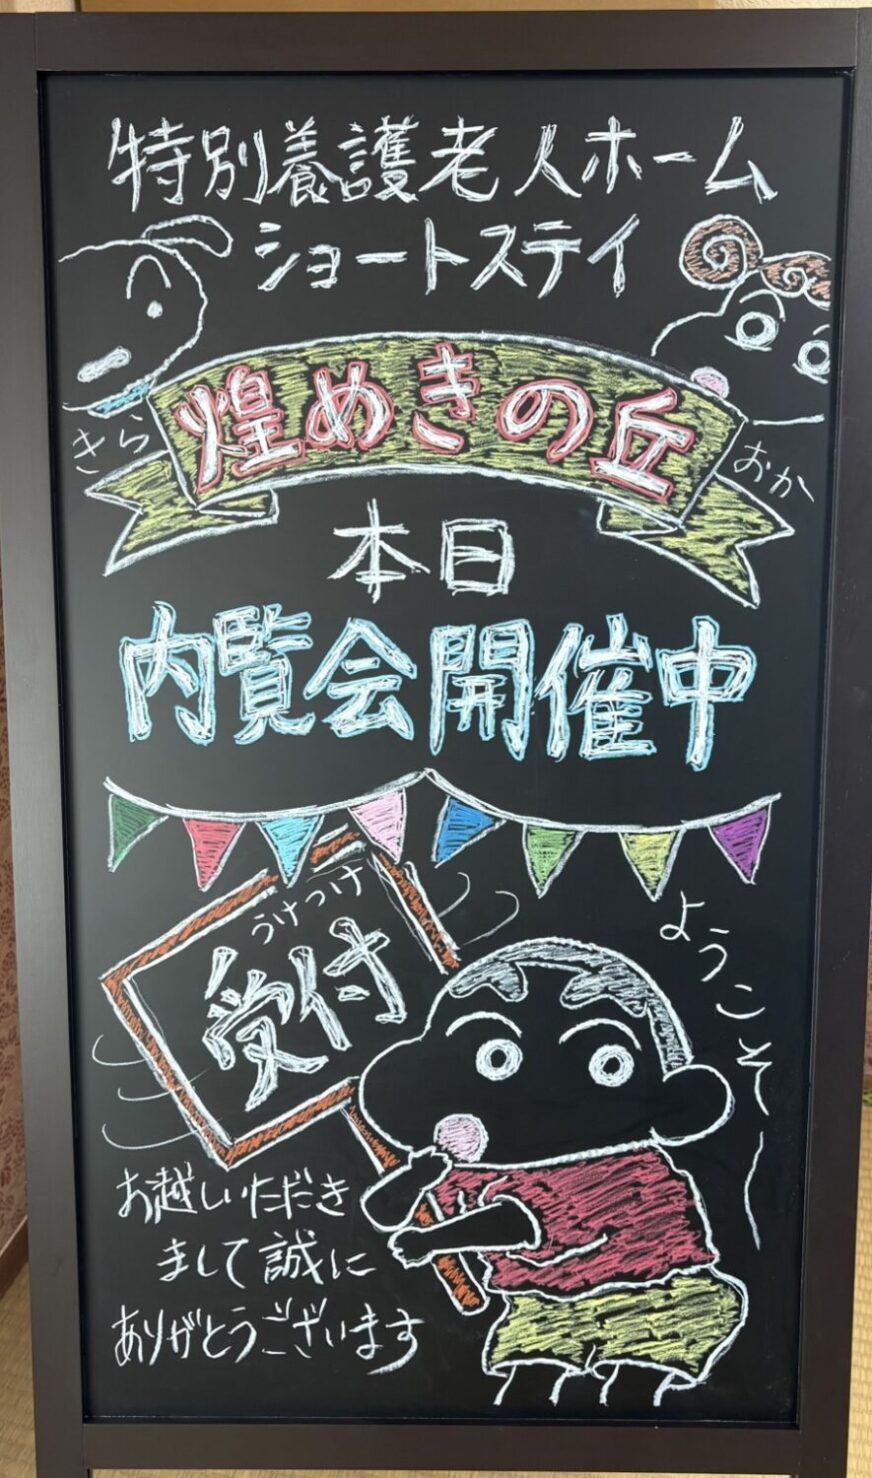 特別養護老人ホーム
ショートステイ
煌めきの丘
きら
おか
本日
内覧会開催中
うけつけ
受付
ようこそ〜
お越しいただき
まして誠に
ありがとうございます